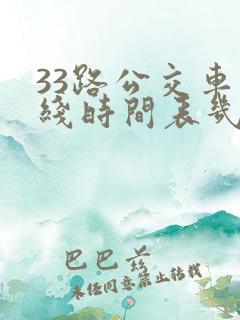 33路公交車
綫時間表幾
巴巴爷
未经同意禁止转载